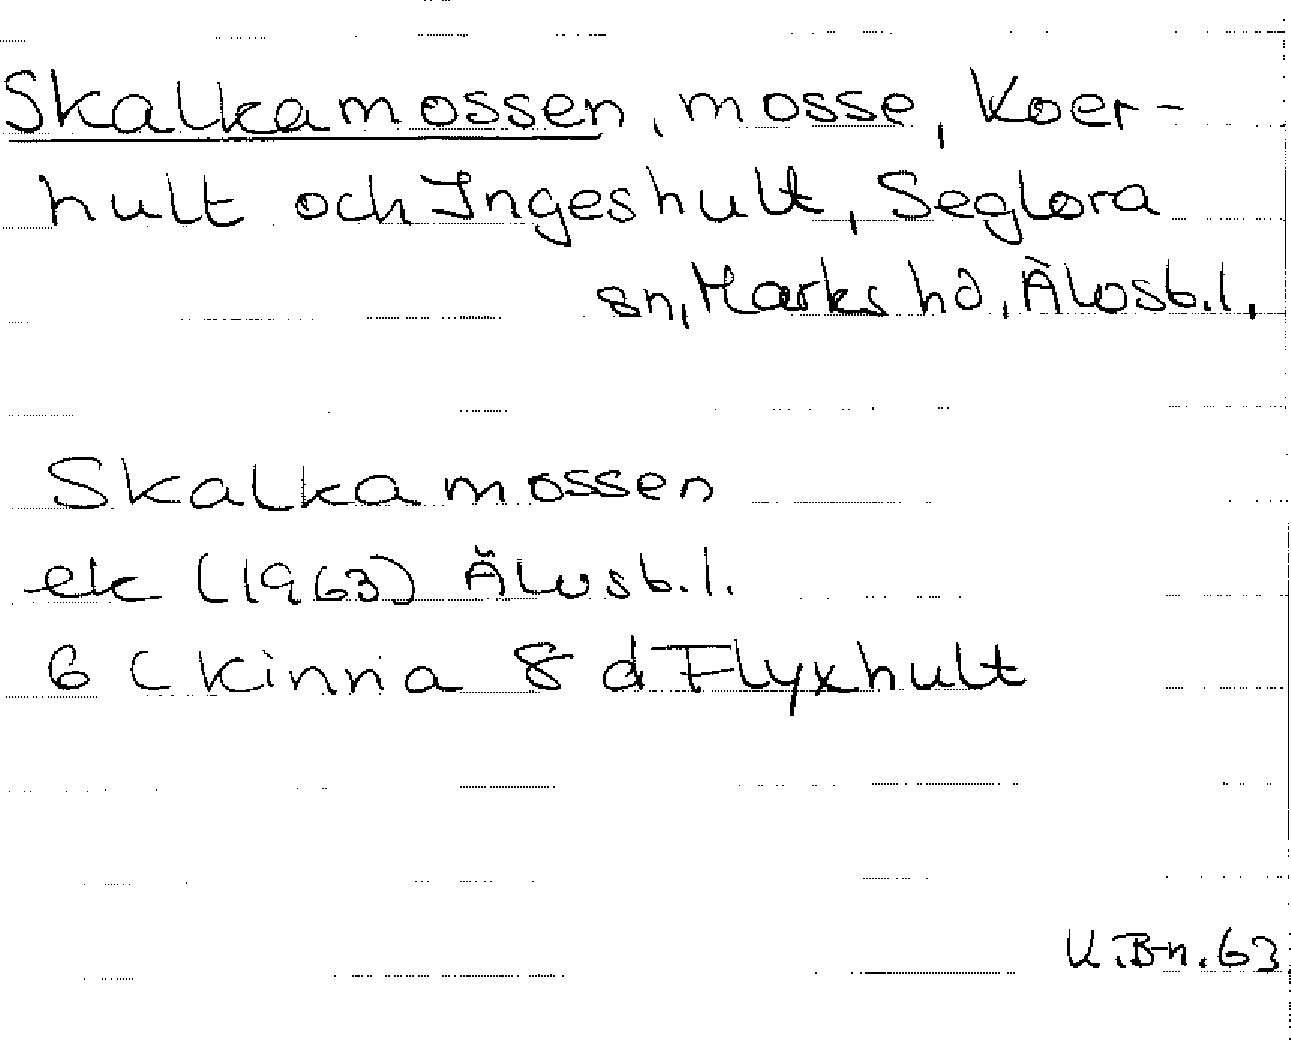 Skalkamossen, mosse, Koer-
hult och Ingeshult, Seglora
sn, Marks hd, Älvsb.l.
Skalkamossen
ek (1963) Älvsb.l.
6 C Kinna 8 d Flyxhult
U.B-n.63